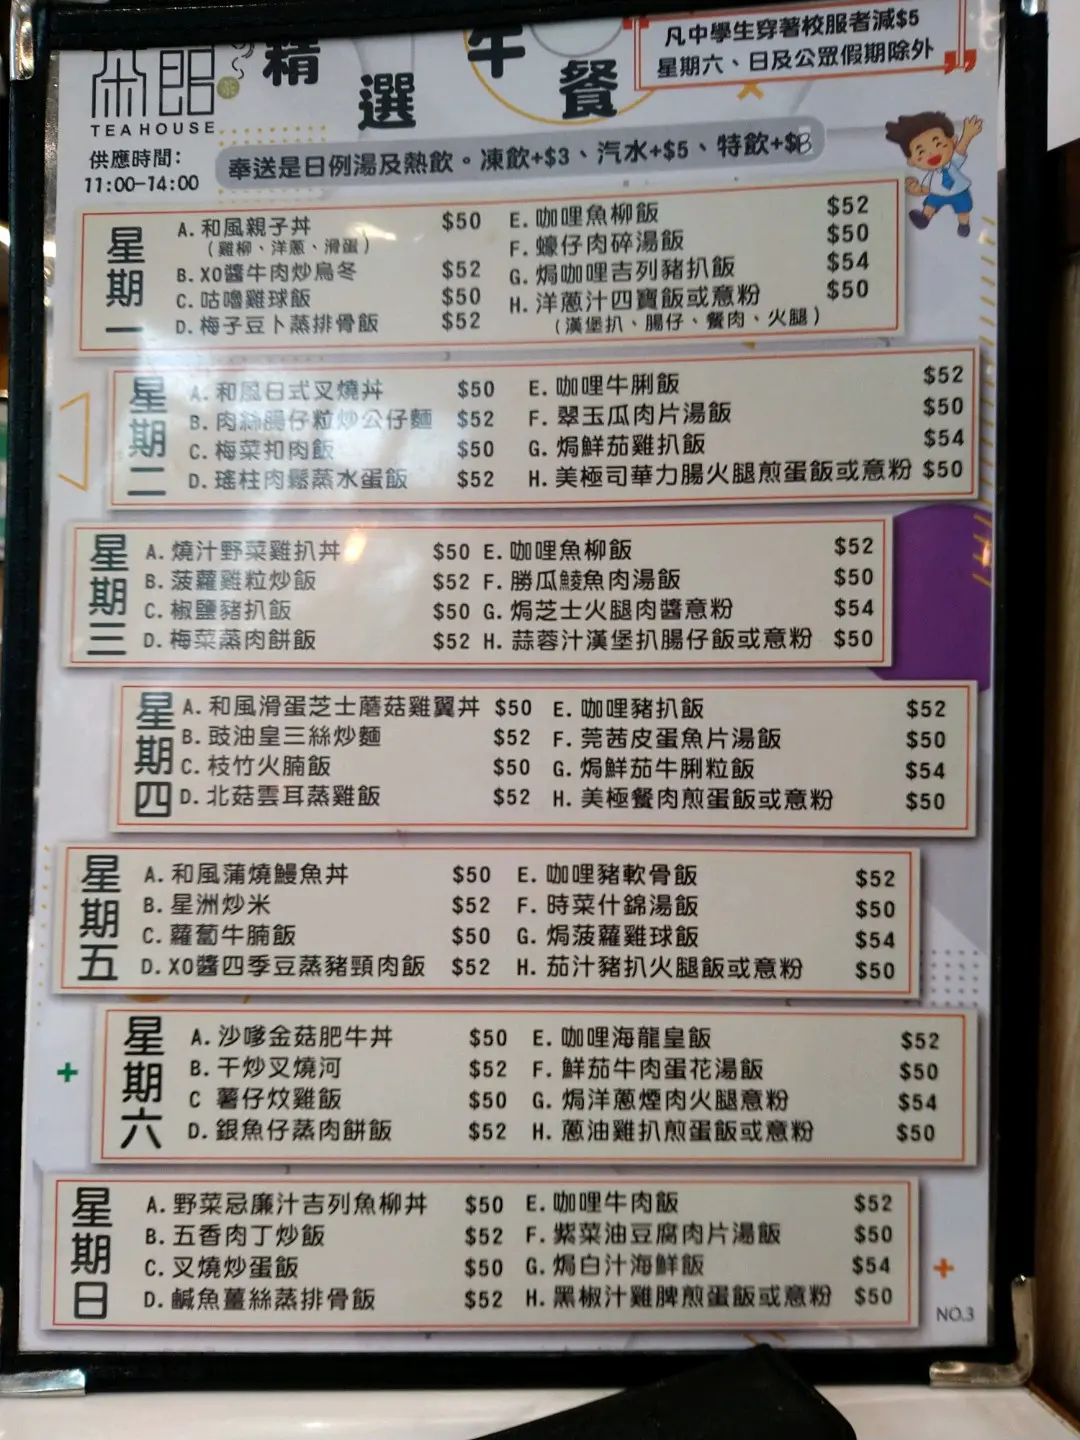 茶館
TEA HOUSE
精選午餐
凡中學生穿著校服者減$5
星期六、日及公眾假期除外
供應時間:
11:00-14:00
奉送是日例湯及熱飲。凍飲+$3、汽水+$5、特飲+$8
星期一
A. 和風親子丼 $50
(雞柳、洋蔥、滑蛋)
B. XO醬牛肉炒烏冬 $52
C. 咕嚕雞球飯 $50
D. 梅子豆卜蒸排骨飯 $52
E. 咖哩魚柳飯 $52
F. 蠔仔肉碎湯飯 $50
G. 焗咖哩吉列豬扒飯 $54
H. 洋蔥汁四寶飯或意粉 $50
(漢堡扒、腸仔、餐肉、火腿)
星期二
A. 和風日式叉燒丼 $50
B. 肉絲腸仔粒炒公仔麵 $52
C. 梅菜扣肉飯 $50
D. 瑤柱肉鬆蒸水蛋飯 $52
E. 咖哩牛脷飯 $52
F. 翠玉瓜肉片湯飯 $50
G. 焗鮮茄雞扒飯 $54
H. 美極司華力腸火腿煎蛋飯或意粉 $50
星期三
A. 燒汁野菜雞扒丼 $50
B. 菠蘿雞粒炒飯 $52
C. 椒鹽豬扒飯 $50
D. 梅菜蒸肉餅飯 $52
E. 咖哩魚柳飯 $52
F. 勝瓜鯪魚肉湯飯 $50
G. 焗芝士火腿肉醬意粉 $54
H. 蒜蓉汁漢堡扒腸仔飯或意粉 $50
星期四
A. 和風滑蛋芝士蘑菇雞翼丼 $50
B. 豉油皇三絲炒麵 $52
C. 枝竹火腩飯 $50
D. 北菇雲耳蒸雞飯 $52
E. 咖哩豬扒飯 $52
F. 莞茜皮蛋魚片湯飯 $50
G. 焗鮮茄牛脷粒飯 $54
H. 美極餐肉煎蛋飯或意粉 $50
星期五
A. 和風蒲燒鰻魚丼 $50
B. 星洲炒米 $52
C. 蘿蔔牛腩飯 $50
D. XO醬四季豆蒸豬頸肉飯 $52
E. 咖哩豬軟骨飯 $52
F. 時菜什錦湯飯 $50
G. 焗菠蘿雞球飯 $54
H. 茄汁豬扒火腿飯或意粉 $50
星期六
A. 沙嗲金菇肥牛丼 $50
B. 干炒叉燒河 $52
C 薯仔炆雞飯 $50
D. 銀魚仔蒸肉餅飯 $52
E. 咖哩海龍皇飯 $52
F. 鮮茄牛肉蛋花湯飯 $50
G. 焗洋蔥煙肉火腿意粉 $54
H. 蔥油雞扒煎蛋飯或意粉 $50
星期日
A. 野菜忌廉汁吉列魚柳丼 $50
B. 五香肉丁炒飯 $52
C. 叉燒炒蛋飯 $50
D. 鹹魚薑絲蒸排骨飯 $52
E. 咖哩牛肉飯 $52
F. 紫菜油豆腐肉片湯飯 $50
G. 焗白汁海鮮飯 $54
H. 黑椒汁雞髀煎蛋飯或意粉 $50
NO.3